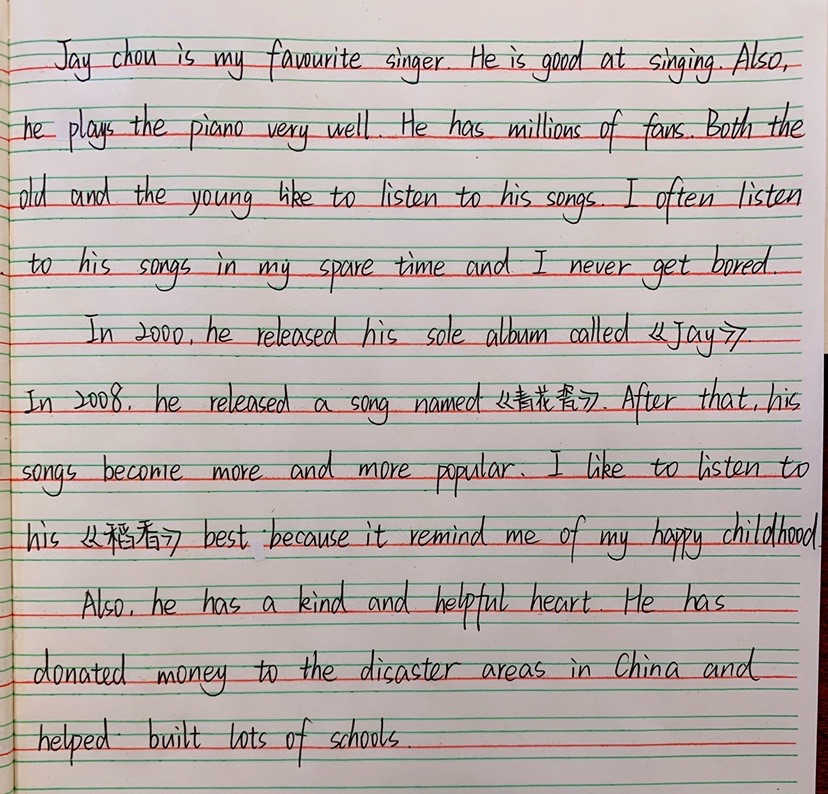 Jay chou is my favourite singer. He is good at singing. Also,
he plays the piano very well. He has millions of fans. Both the
old and the young like to listen to his songs. I often listen
to his songs in my spare time and I never get bored.
In 2000, he released his sole album called 《Jay》.
In 2008, he released a song named 《青花瓷》. After that, his
songs become more and more popular. I like to listen to
his 《稻香》 best because it remind me of my happy childhood.
Also, he has a kind and helpful heart. He has
donated money to the disaster areas in China and
helped built lots of schools.